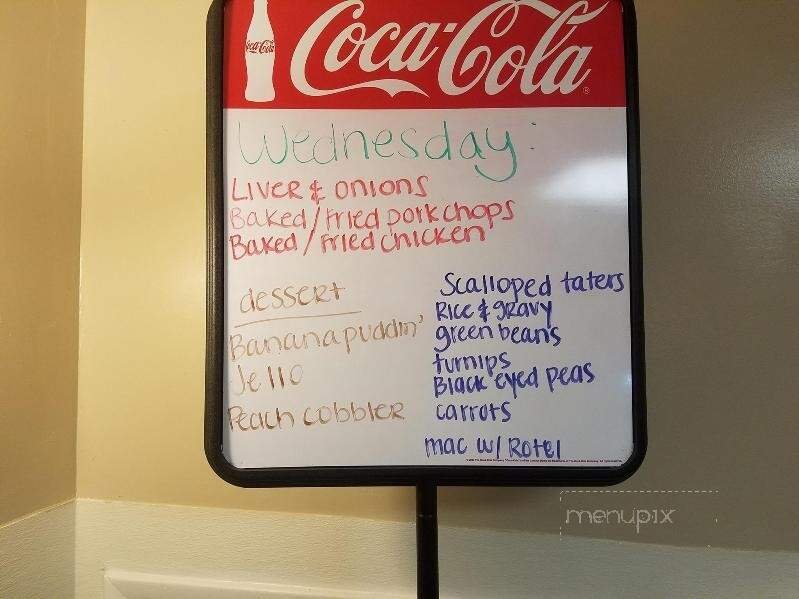 Coca-Cola
Coca-Cola
Wednesday:
Liver & onions
Baked/fried pork chops
Baked/fried chicken
dessert
Banana puddin'
Jello
Peach cobbler
Scalloped taters
Rice & gravy
green beans
turnips
Black eyed peas
carrots
mac w/ Rotel
menupix